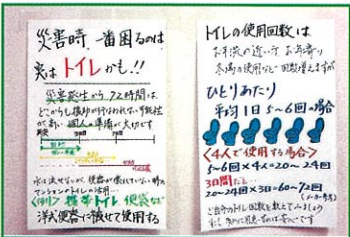 災害時、一番困るのは
実はトイレかも!!
災害発生から72時間は
どこからも援助が行なわれない可能性
が高い 個人の準備が大切です
水は流せないが、便器が壊れていない時の
マンションのトイレの活用…
(例)携帯トイレ 便袋など
洋式便器に被せて使用する
トイレの使用回数は
お手洗の近い方 お年寄り
冬場の使用など 回数増えますが
ひとりあたり
平均1日5~6回の場合
<4人で使用する場合>
5~6回×4人=20~24回
3日間だと…
20~24回×3日=60~72回
ご自分のトイレ回数を数えてみましょう